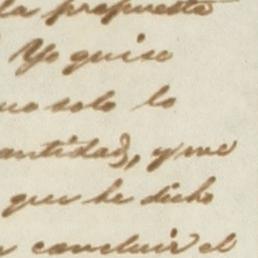 la propuesta
Yo quise
no solo lo
antidad, y me
que he dicho
concluir el